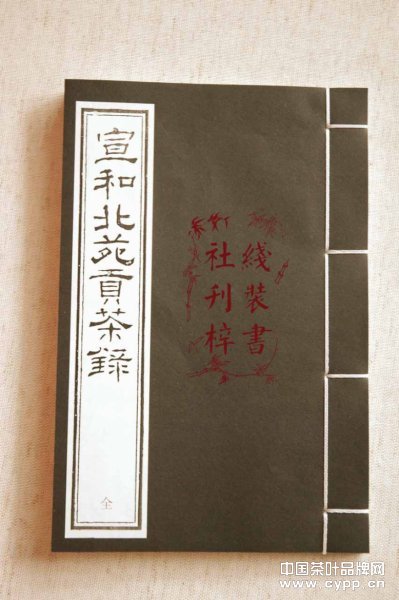 宣和北苑貢茶録
全
綫裝書
社刊梓
中国茶叶品牌网
www.cypp.cn